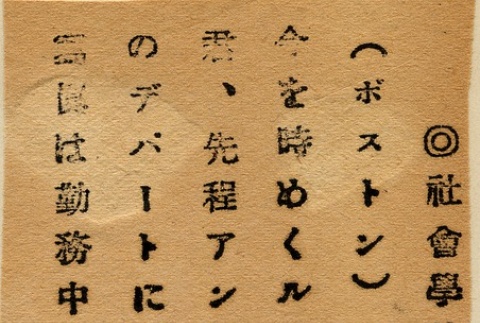 ◎社會學
(ボストン)
今を時めくル
君、先程アン
のデパートに
は勤務中